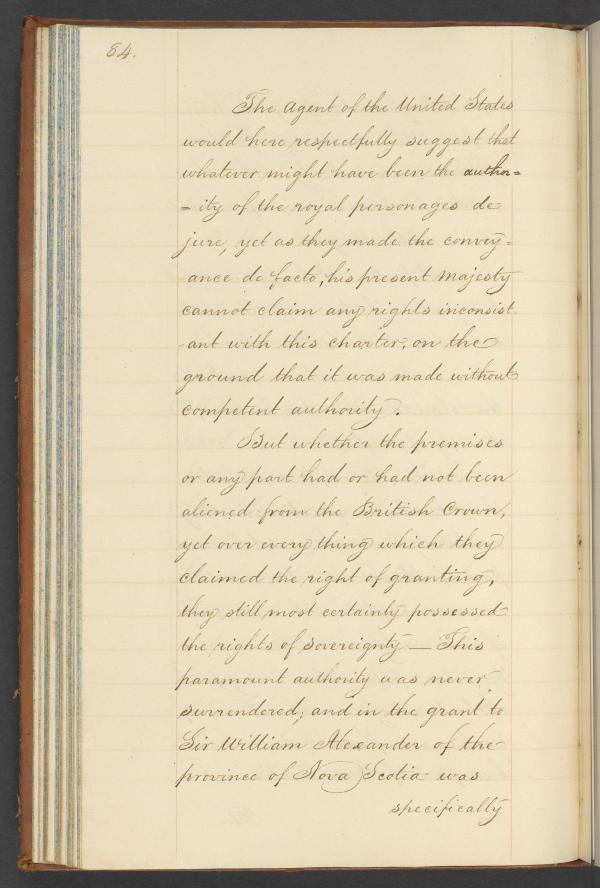 84.
The Agent of the United States
would here respectfully suggest that
whatever might have been the author=
= ity of the royal personages de
jure, yet as they made the convey=
=ance de facto, his present Majesty
cannot claim any rights inconsist
-ant with this charter, on the
ground that it was made without
competent authority.
But whether the premises
or any part had or had not been
aliened from the British Crown,
yet over every thing which they
claimed the right of granting,
they still most certainly possessed
the rights of Sovereignty — This
paramount authority was never
surrendered; and in the grant to
Sir William Alexander of the
province of Nova Scotia was
specifically